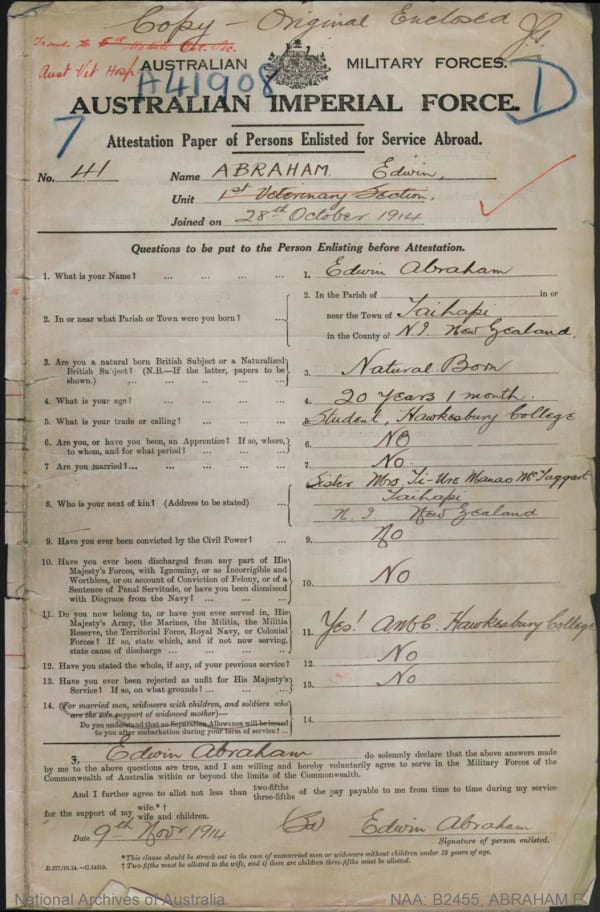 Copy - Original Enclosed
Trans. to 5th Mobile Vet. Sec.
Aust Vet Hosp
A41908
AUSTRALIAN MILITARY FORCES.
D
AUSTRALIAN IMPERIAL FORCE.
7
Attestation Paper of Persons Enlisted for Service Abroad.
No. 41 Name ABRAHAM. Edwin,
Unit 1st Veterinary Section,
Joined on 28th October 1914
Questions to be put to the Person Enlisting before Attestation.
1. What is your Name? ... ... ... ... 1. Edwin Abraham
2. In or near what Parish or Town were you born? ... 2. In the Parish of in or
near the Town of Taihapi
in the County of N.I. New Zealand.
3. Are you a natural born British Subject or a Naturalised
British Subject? (N.B.—If the latter, papers to be
shown.) ... ... ... ... ... 3. Natural Born
4. What is your age? ... ... ... ... 4. 20 years 1 month.
5. What is your trade or calling? ... ... ... 5. Student, Hawkesbury College
6. Are you, or have you been, an Apprentice? If so, where,
to whom, and for what period? ... ... ... 6. No
7. Are you married?... ... ... ... ... 7. No.
8. Who is your next of kin? (Address to be stated) ... 8. Sister Mrs Ti-Ure Manao McTaggart
Taihapi
N. I New Zealand
9. Have you ever been convicted by the Civil Power? ... 9. No
10. Have you ever been discharged from any part of His
Majesty's Forces, with Ignominy, or as Incorrigible and
Worthless, or on account of Conviction of Felony, or of a
Sentence of Penal Servitude, or have you been dismissed
with Disgrace from the Navy? ... ... ... 10. No
11. Do you now belong to, or have you ever served in, His
Majesty's Army, the Marines, the Militia, the Militia
Reserve, the Territorial Force, Royal Navy, or Colonial
Forces? If so, state which, and if not now serving,
state cause of discharge ... ... ... ... 11. Yes! Hawkesbury College
12. Have you stated the whole, if any, of your previous service? 12. No
13. Have you ever been rejected as unfit for His Majesty's
Service? If so, on what grounds? ... ... ... 13. No
14. (For married men, widowers with children, and soldiers who
are the sole support of widowed mother)—
Do you understand that no Separation Allowance will be issued
to you after embarkation during your term of service? ... 14.
I, Edwin Abraham do solemnly declare that the above answers made
by me to the above questions are true, and I am willing and hereby voluntarily agree to serve in the Military Forces of the
Commonwealth of Australia within or beyond the limits of the Commonwealth.
And I further agree to allot not less than two-fifths three-fifths of the pay payable to me from time to time during my service
for the support of my wife.*† wife and children.
Date 9th Nov 1914 Edwin Abraham
Signature of person enlisted.
*This clause should be struck out in the case of unmarried men or widowers without children under 18 years of age.
† Two-fifths must be allotted to the wife, and if there are children three-fifths must be allotted.
D.277/10.14.—C.14519.
National Archives of Australia NAA: B2455, ABRAHAM E